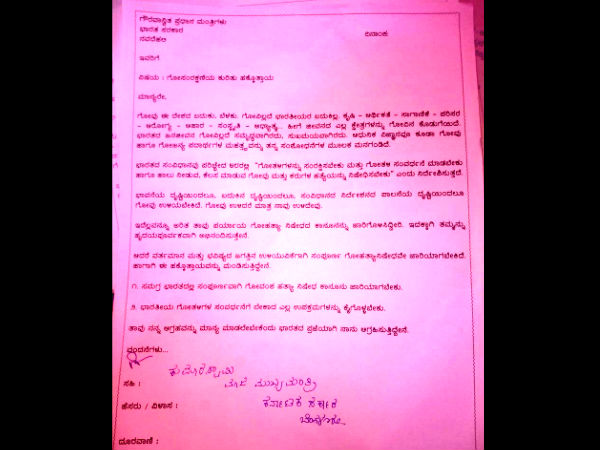 ಗೌರವಾನ್ವಿತ ಪ್ರಧಾನ ಮಂತ್ರಿಗಳು
ಭಾರತ ಸರಕಾರ
ನವದೆಹಲಿ
ದಿನಾಂಕ:
ಇವರಿಗೆ
ವಿಷಯ : ಗೋಸಂರಕ್ಷಣೆಯ ಕುರಿತು ಹಕ್ಕೊತ್ತಾಯ
ಮಾನ್ಯರೇ,
ಗೋವು ಈ ದೇಶದ ಬದುಕು. ಬೆಳಕು. ಗೋವಿಲ್ಲದೆ ಭಾರತೀಯರ ಬದುಕಿಲ್ಲ. ಕೃಷಿ - ಆರ್ಥಿಕತೆ - ಸಾಗಾಣಿಕೆ - ಪರಿಸರ
- ಆರೋಗ್ಯ - ಆಹಾರ - ಸಂಸ್ಕೃತಿ - ಆಧ್ಯಾತ್ಮ... ಹೀಗೆ ಜೀವನದ ಎಲ್ಲ ಕ್ಷೇತ್ರಗಳನ್ನು ಗೋವಿನ ಕೊಡುಗೆಯಿದೆ.
ಭಾರತದ ಜನಜೀವನ ಗೋವಿಲ್ಲದೆ ಸಮೃದ್ಧವಾಗಿರದು. ಸುಖಮಯವಾಗಿರದು. ಆಧುನಿಕ ವಿಜ್ಞಾನವೂ ಕೂಡಾ ಗೋವು
ಹಾಗೂ ಗೋಜನ್ಯ ಪದಾರ್ಥಗಳ ಮಹತ್ವವನ್ನು ತನ್ನ ಸಂಶೋಧನೆಗಳ ಮೂಲಕ ಮನಗಂಡಿದೆ.
ಭಾರತದ ಸಂವಿಧಾನವು ಪರಿಚ್ಛೇದ ೪೮ರಲ್ಲಿ "ಗೋತಳಿಗಳನ್ನು ಸಂರಕ್ಷಿಸಬೇಕು ಮತ್ತು ಗೋತಳಿ ಸಂವರ್ಧನೆ ಮಾಡಬೇಕು
ಹಾಗೂ ಹಾಲು ನೀಡುವ, ಕೆಲಸ ಮಾಡುವ ಗೋವು ಮತ್ತು ಕರುಗಳ ಹತ್ಯೆಯನ್ನು ನಿಷೇಧಿಸಬೇಕು" ಎಂದು ನಿರ್ದೇಶಿಸುತ್ತದೆ.
ಭಾವನೆಯ ದೃಷ್ಟಿಯಿಂದಲೂ, ಬದುಕಿನ ದೃಷ್ಟಿಯಿಂದಲೂ, ಸಂವಿಧಾನದ ನಿರ್ದೇಶನದ ಪಾಲನೆಯ ದೃಷ್ಟಿಯಿಂದಲೂ
ಗೋವು ಉಳಿಯಬೇಕಿದೆ. ಗೋವು ಉಳಿದರೆ ಮಾತ್ರ ನಾವು ಉಳಿದೇವು.
ಇದೆಲ್ಲವನ್ನೂ ಅರಿತ ತಾವು ಪರ್ಯಾಯ ಗೋಹತ್ಯಾ ನಿಷೇಧದ ಕಾನೂನನ್ನು ಜಾರಿಗೊಳಿಸಿದ್ದೀರಿ. ಇದಕ್ಕಾಗಿ ತಮ್ಮನ್ನು
ಹೃದಯಪೂರ್ವಕವಾಗಿ ಅಭಿನಂದಿಸುತ್ತೇನೆ.
ಆದರೆ ವರ್ತಮಾನ ಮತ್ತು ಭವಿಷ್ಯದ ಜಗತ್ತಿನ ಉಳಿಯುವಿಕೆಗಾಗಿ ಸಂಪೂರ್ಣ ಗೋಹತ್ಯಾನಿಷೇಧವೇ ಜಾರಿಯಾಗಬೇಕಿದೆ.
ಹಾಗಾಗಿ ಈ ಹಕ್ಕೊತ್ತಾಯವನ್ನು ಮಂಡಿಸುತ್ತಿದ್ದೇನೆ.
೧. ಸಮಗ್ರ ಭಾರತದಲ್ಲಿ ಸಂಪೂರ್ಣವಾಗಿ ಗೋವಂಶ ಹತ್ಯಾ ನಿಷೇಧ ಕಾನೂನು ಜಾರಿಯಾಗಬೇಕು.
೨. ಭಾರತೀಯ ಗೋತಳಿಗಳ ಸಂವರ್ಧನೆಗೆ ಬೇಕಾದ ಎಲ್ಲ ಉಪಕ್ರಮಗಳನ್ನು ಕೈಗೊಳ್ಳಬೇಕು.
ತಾವು ನನ್ನ ಆಗ್ರಹವನ್ನು ಮಾನ್ಯ ಮಾಡಲೇಬೇಕೆಂದು ಭಾರತದ ಪ್ರಜೆಯಾಗಿ ನಾನು ಆಗ್ರಹಿಸುತ್ತಿದ್ದೇನೆ.
ವಂದನೆಗಳು...
ಕುಮಾರಸ್ವಾಮಿ
ಸಹಿ : ಮಾಜಿ ಮುಖ್ಯಮಂತ್ರಿ
ಹೆಸರು / ವಿಳಾಸ : ಕರ್ನಾಟಕ ಸರ್ಕಾರ
ಬೆಂಗಳೂರು
ದೂರವಾಣಿ :